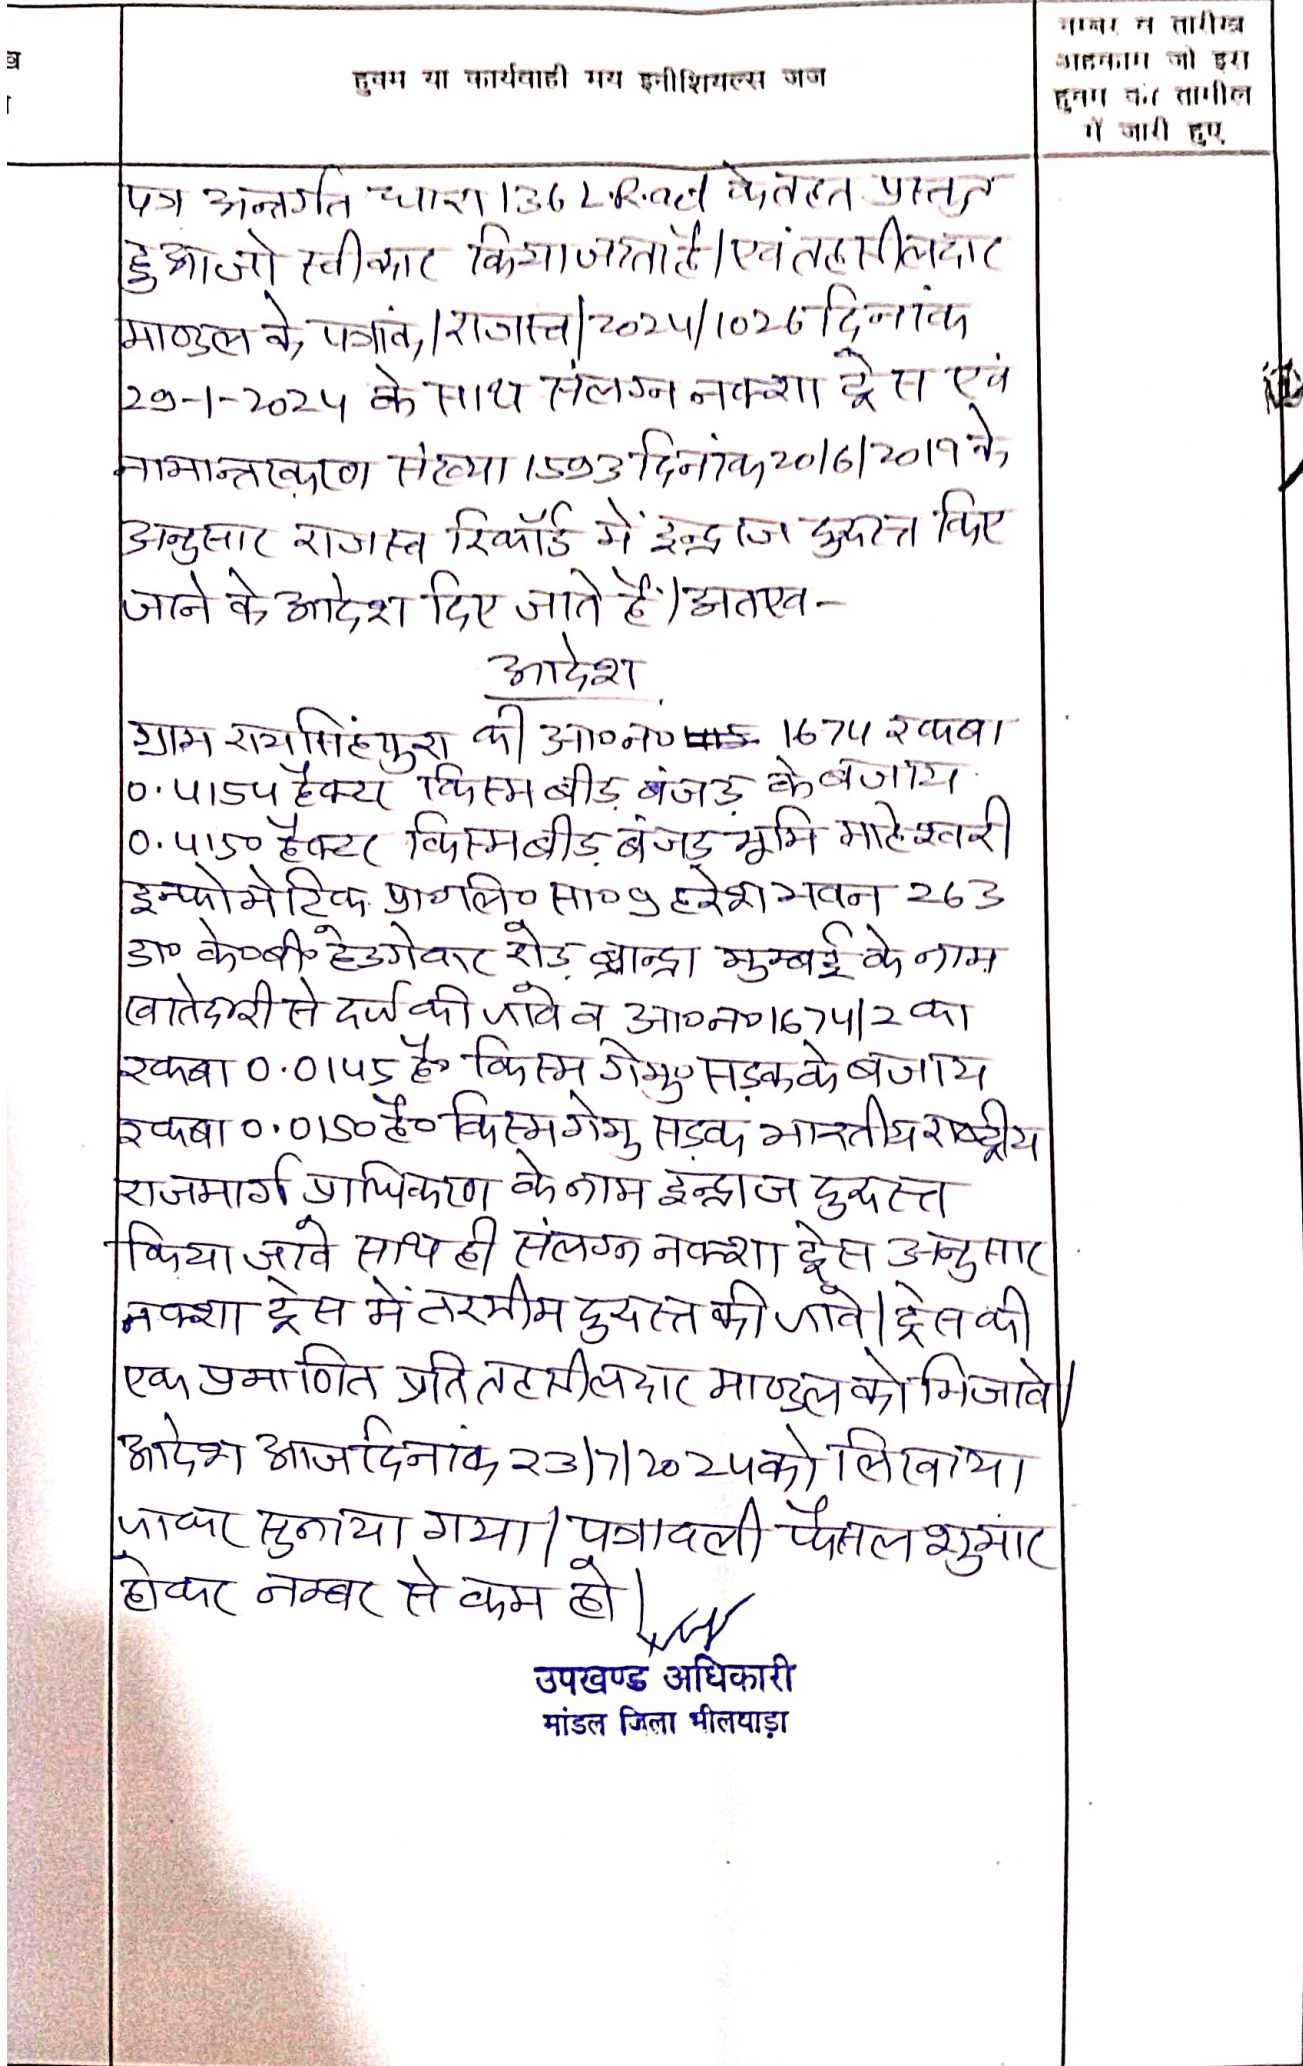 हुक्म या कार्यवाही मय इनीशियल्स जज
नम्बर व तारीख
अहकाम जो इस
हुक्म की तामील
में जारी हुए
पत्र अन्तर्गत धारा 136 L.R.act के तहत प्रस्तुत
हुआ जो स्वीकार किया जाता है। एवं तहसीलदार
माण्डल के पत्रांक/राजस्व/2024/1026 दिनांक
29-1-2024 के साथ संलग्न नक्शा ट्रेस एवं
नामान्तरकरण संख्या 1593 दिनांक 20/6/2019 के
अनुसार राजस्व रिकॉर्ड में इन्द्राज दुरुस्त किए
जाने के आदेश दिए जाते हैं। अतएव-
आदेश
ग्राम रायसिंहपुरा की आ०न० 1674 रकबा
0.4154 हैक्टर किस्म बीड़ बंजड़ के बजाय
0.4150 हैक्टर किस्म बीड़ बंजड़ भूमि माहेश्वरी
इन्फोमेटिक प्रा०लि० सा० 9 हरेश भवन 263
डा० के०बी० हेडगेवार रोड़ बान्द्रा मुम्बई के नाम
खातेदारी से दर्ज की जावे व आ०न० 1674/2 का
रकबा 0.0145 है० किस्म गैमु० सड़क के बजाय
रकबा 0.0150 है० किस्म गैमु सड़क भारतीय राष्ट्रीय
राजमार्ग प्राधिकरण के नाम इन्द्राज दुरुस्त
किया जावे साथ ही संलग्न नक्शा ट्रेस अनुसार
नक्शा ट्रेस में तरमीम दुरुस्त की जावे। ट्रेस की
एक प्रमाणित प्रति तहसीलदार माण्डल को भिजावे।
आदेश आज दिनांक 23/7/2024 को लिखाया
जाकर सुनाया गया। पत्रावली फैसल शुमार
होकर नम्बर से कम हो।
उपखण्ड अधिकारी
मांडल जिला भीलवाड़ा